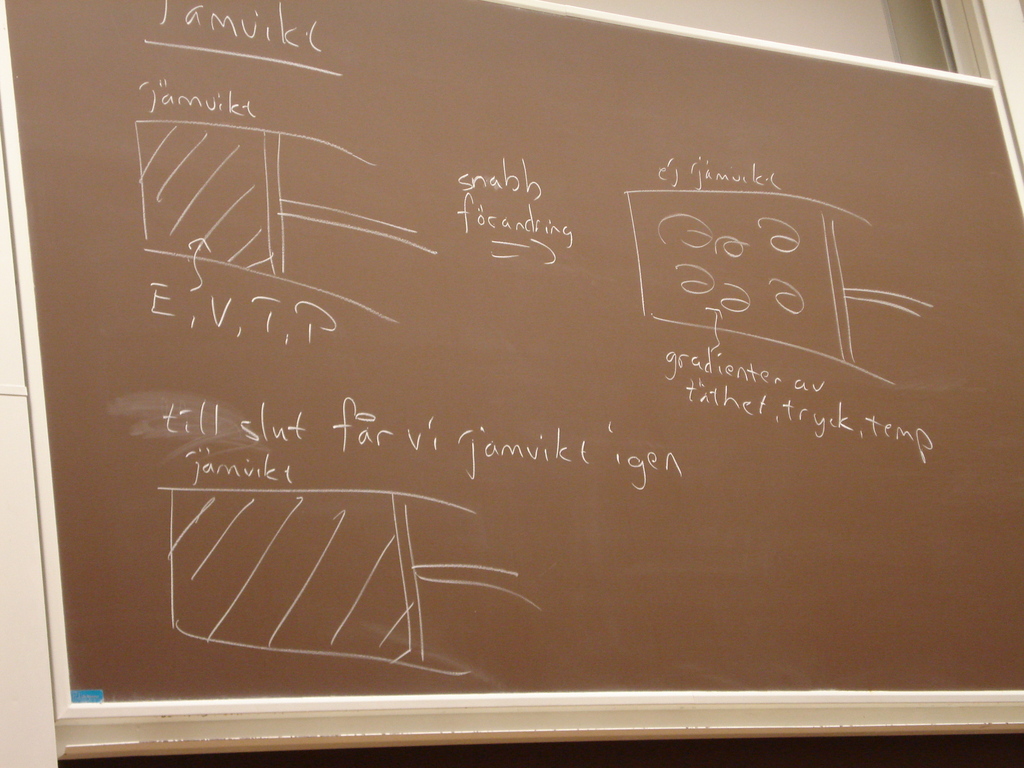 Jämvikt
jämvikt
snabb
förändring
E, V, T, P
ej jämvikt
gradienter av
täthet, tryck, temp
till slut får vi jämvikt igen
jämvikt